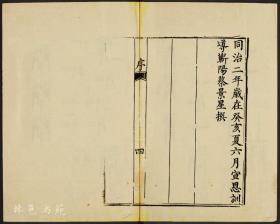 同治二年歲在癸亥夏六月宣恩訓
導蘄陽蔡景星撰
序
四